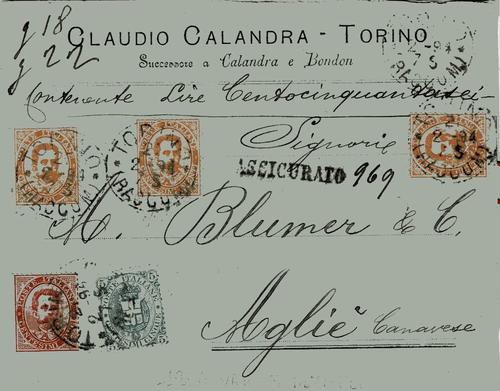 g 18
g 22
CLAUDIO CALANDRA - TORINO
Successore a Calandra e Bondon
Contenente Lire Centocinquantasei
Signori
ASSICURATO 969
M. Blumer & C.
Agliè Canavese